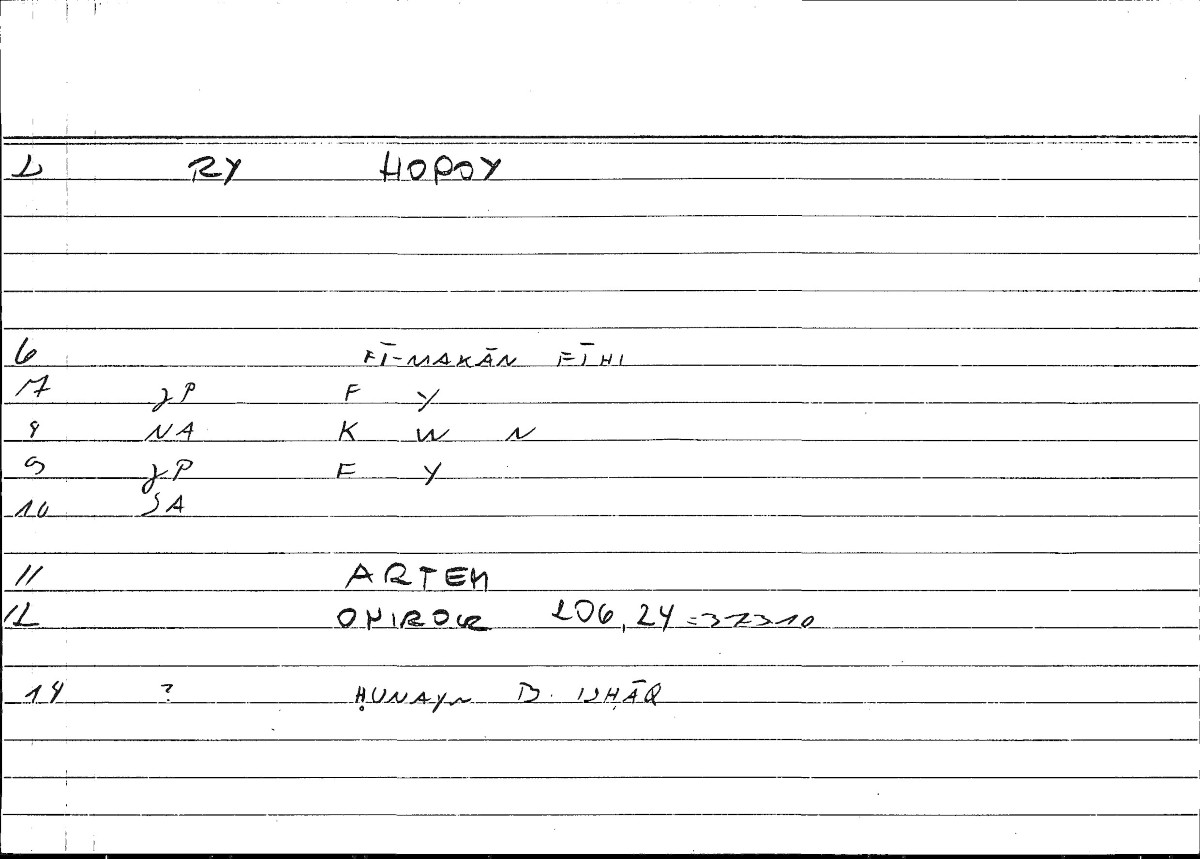 2 RY HOPOY
6 FĪ-MAKĀN FĪHI
7 gP F Y
8 NA K W N
9 gP F Y
10 SA
11 ARTEM
12 ONIROCR 206,24
14 ? ḤUNAYN B. ISḤĀQ